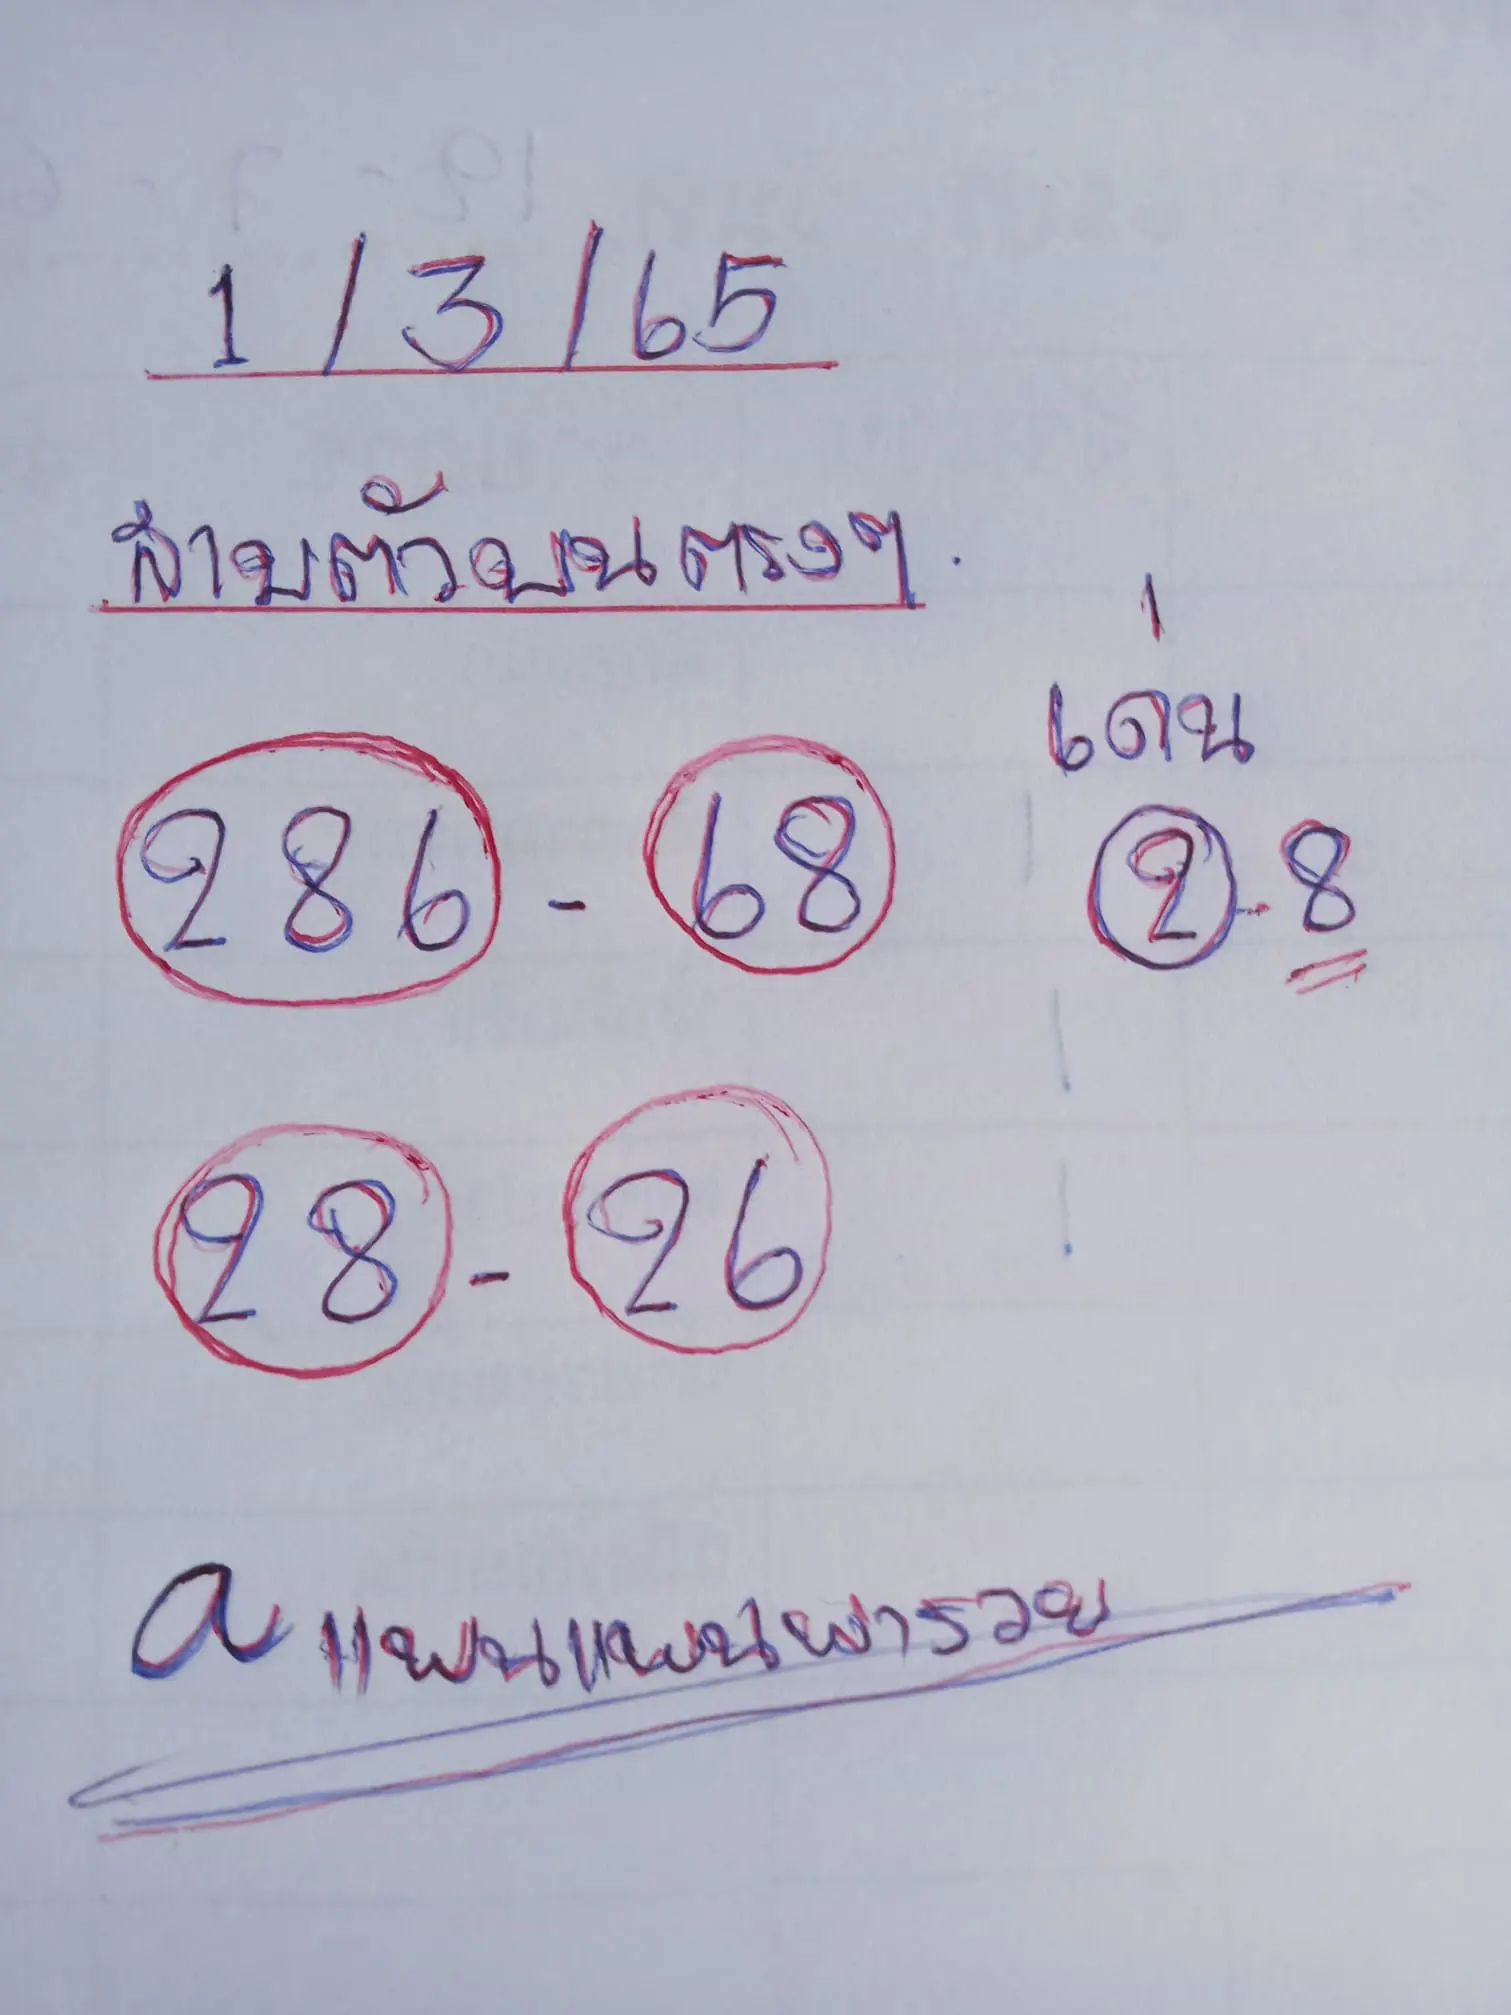 1/3/65
สามตัวบนตรงๆ.
เด่น
286 - 68
2 - 8
28 - 26
a แฟนแพนพารวย